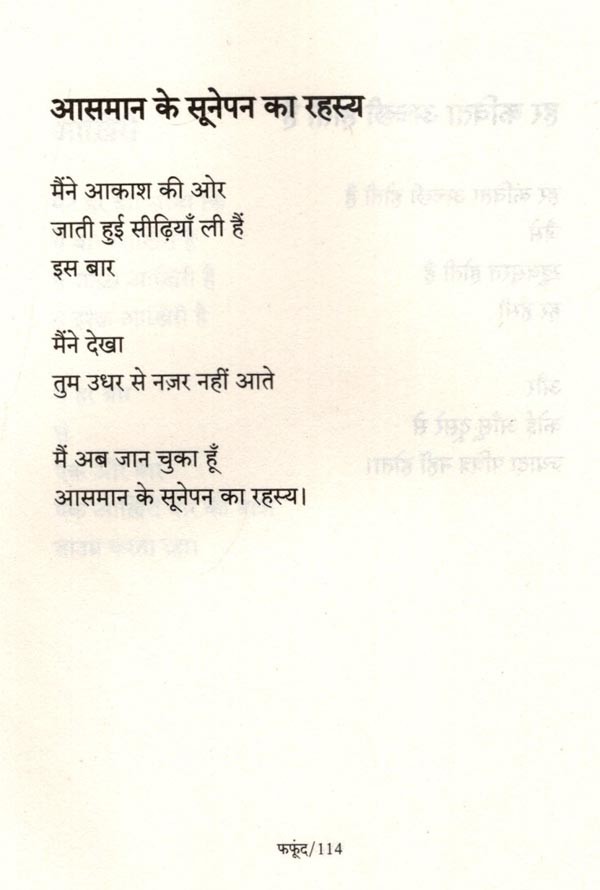 आसमान के सूनेपन का रहस्य
मैंने आकाश की ओर
जाती हुई सीढ़ियाँ ली हैं
इस बार
मैंने देखा
तुम उधर से नज़र नहीं आते
मैं अब जान चुका हूँ
आसमान के सूनेपन का रहस्य।
फफूंद/114